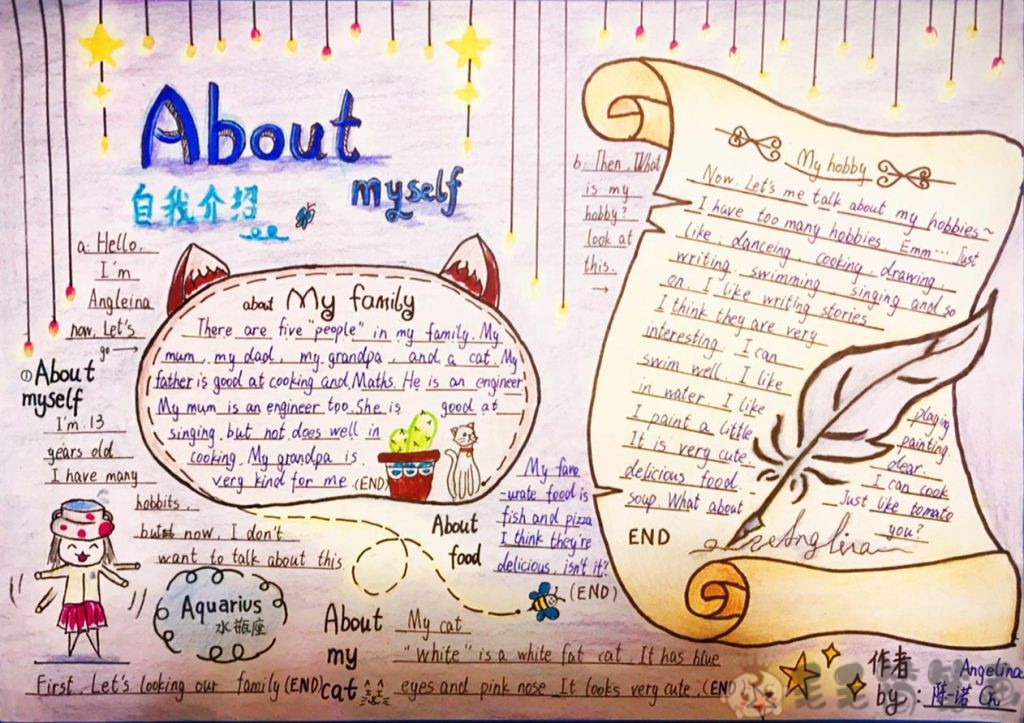 About
myself
自我介绍
a: Hello,
I'm
Angleina
now, Let's
go →
①About
myself
I'm 13
years old
I have many
hobbits,
but now, I don't
want to talk about this
Aquarius
水瓶座
First, Let's looking our family (END)
about My family
There are five "people" in my family. My
mum, my dad, my grandpa, and a cat. My
father is good at cooking and Maths. He is an engineer
My mum is an engineer too. She is good at
singing, but not does well in
cooking. My grandpa is
very kind for me. (END)
About
food
My favo
-urate food is
fish and pizza
I think they're
delicious, isn't it?
(END)
About
my
cat
My cat
"White" is a white fat cat. It has blue
eyes and pink nose. It looks very cute. (END)
b. Then, What
is my
hobby?
look at
this.
→
My hobby
Now. Let's me talk about my hobbies~
I have too many hobbies. Emm... Just
like, danceing, cooking, drawing,
writing, swimming singing and so
on. I like writing stories
I think they are very
interesting. I can
swim well. I like playing
in water. I like painting
I paint a little dear.
It is very cute. I can cook
delicious food. Just like tomato
soup. What about you?
END
Anglina
作者 Angelina
by:陈一诺